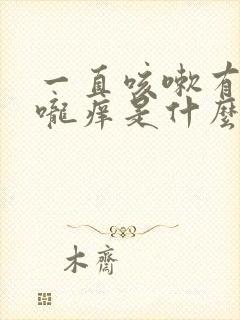 一直咳嗽有
嚨痒是什麼
木齋